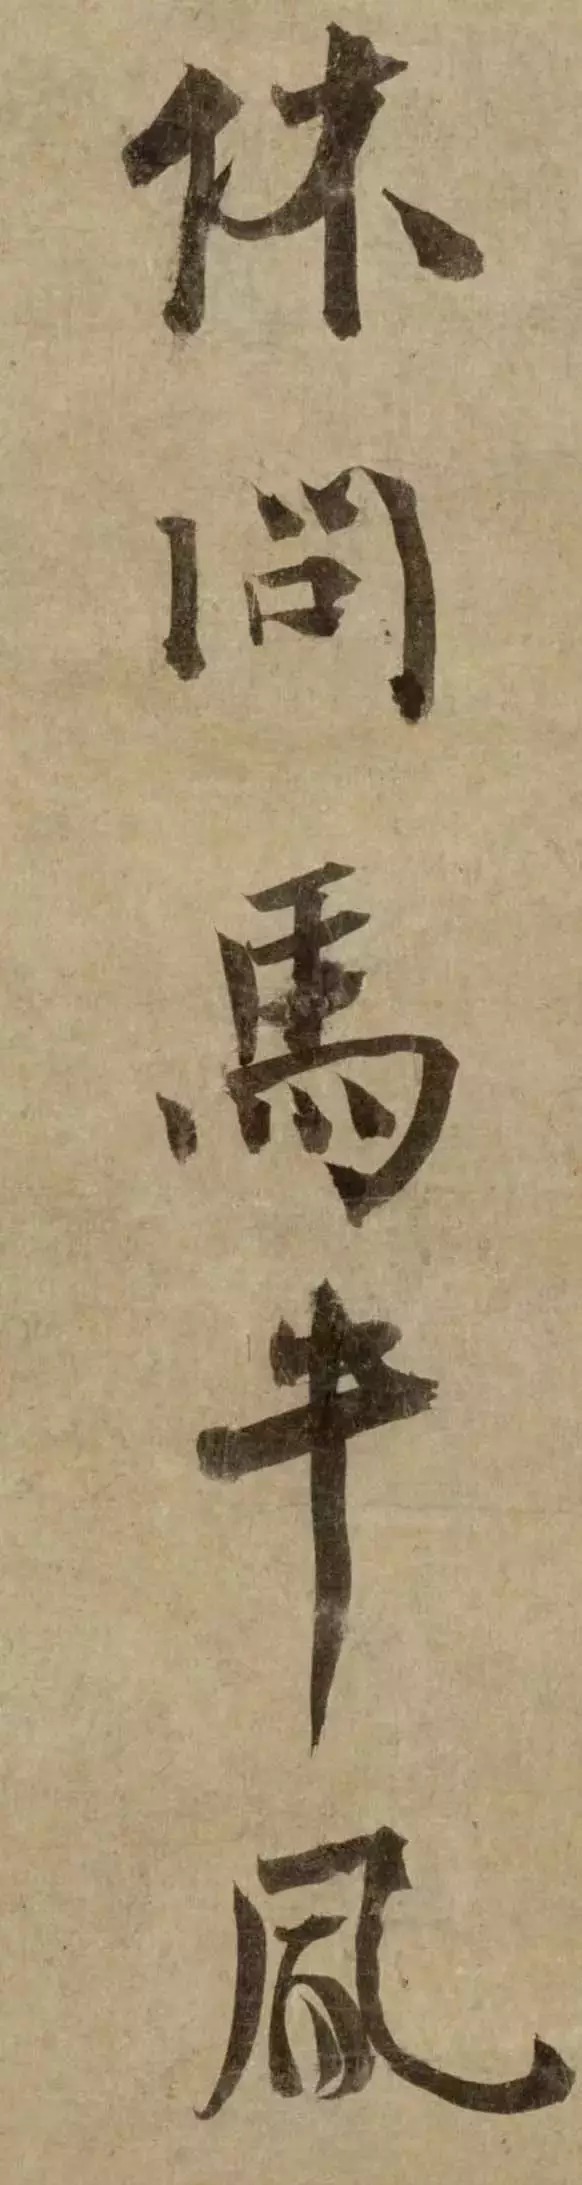 休問馬牛風